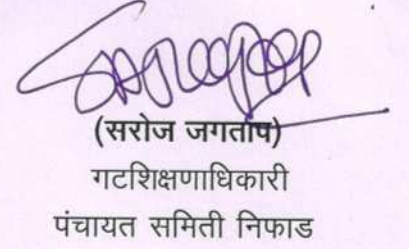 (सरोज जगताप)
गटशिक्षणाधिकारी
पंचायत समिती निफाड